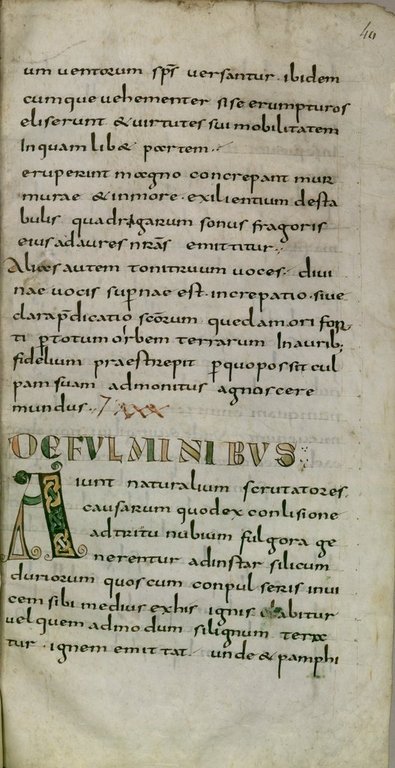 40
um ventorum sps versantur. ibidem
cumque vehementer sise erumpturos
eliserunt & virtutes sui mobilitatem
Inquam lib& partem.
eruperint magno concrepant mur
murae & inmore. exilientium desta
bulis quadrigarum sonus fragoris
eius ad aures nras emittitur.
Alias autem tonitruum voces. divi
nae vocis supnae est. increpatio. sive
clara pdicatio scorum quedam ori for
ti ptotum orbem terrarum Inaurib;
fidelium praestrepit pquo possit cul
pam suam admonitus agnoscere
mundus. 7 xxx
DE FULMINIBUS
Aiunt naturalium scrutatores.
causarum quod ex conlisione
ad tritu nubium fulgora ge
nerentur ad instar silicum
duriorum quos cum conpulseris invi
cem sibi medius ex his ignis elabitur
vel quem ad modum si lignum tera
tur. ignem emittat. unde & pamphi